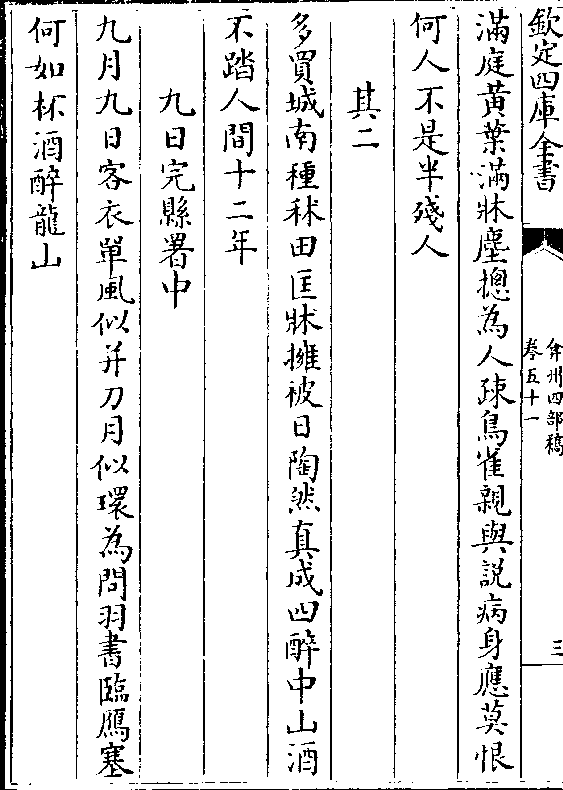 欽定四庫全書
弇州四部稿
卷五十一
三
滿庭黃葉滿牀塵摠為人疎鳥雀親與説病身應莫恨
何人不是半殘人
其二
多買城南種秫田匡牀擁被日陶然真成四醉中山酒
不踏人間十二年
九日完縣署中
九月九日客衣單風似并刀月似環為問羽書臨鴈塞
何如杯酒醉龍山